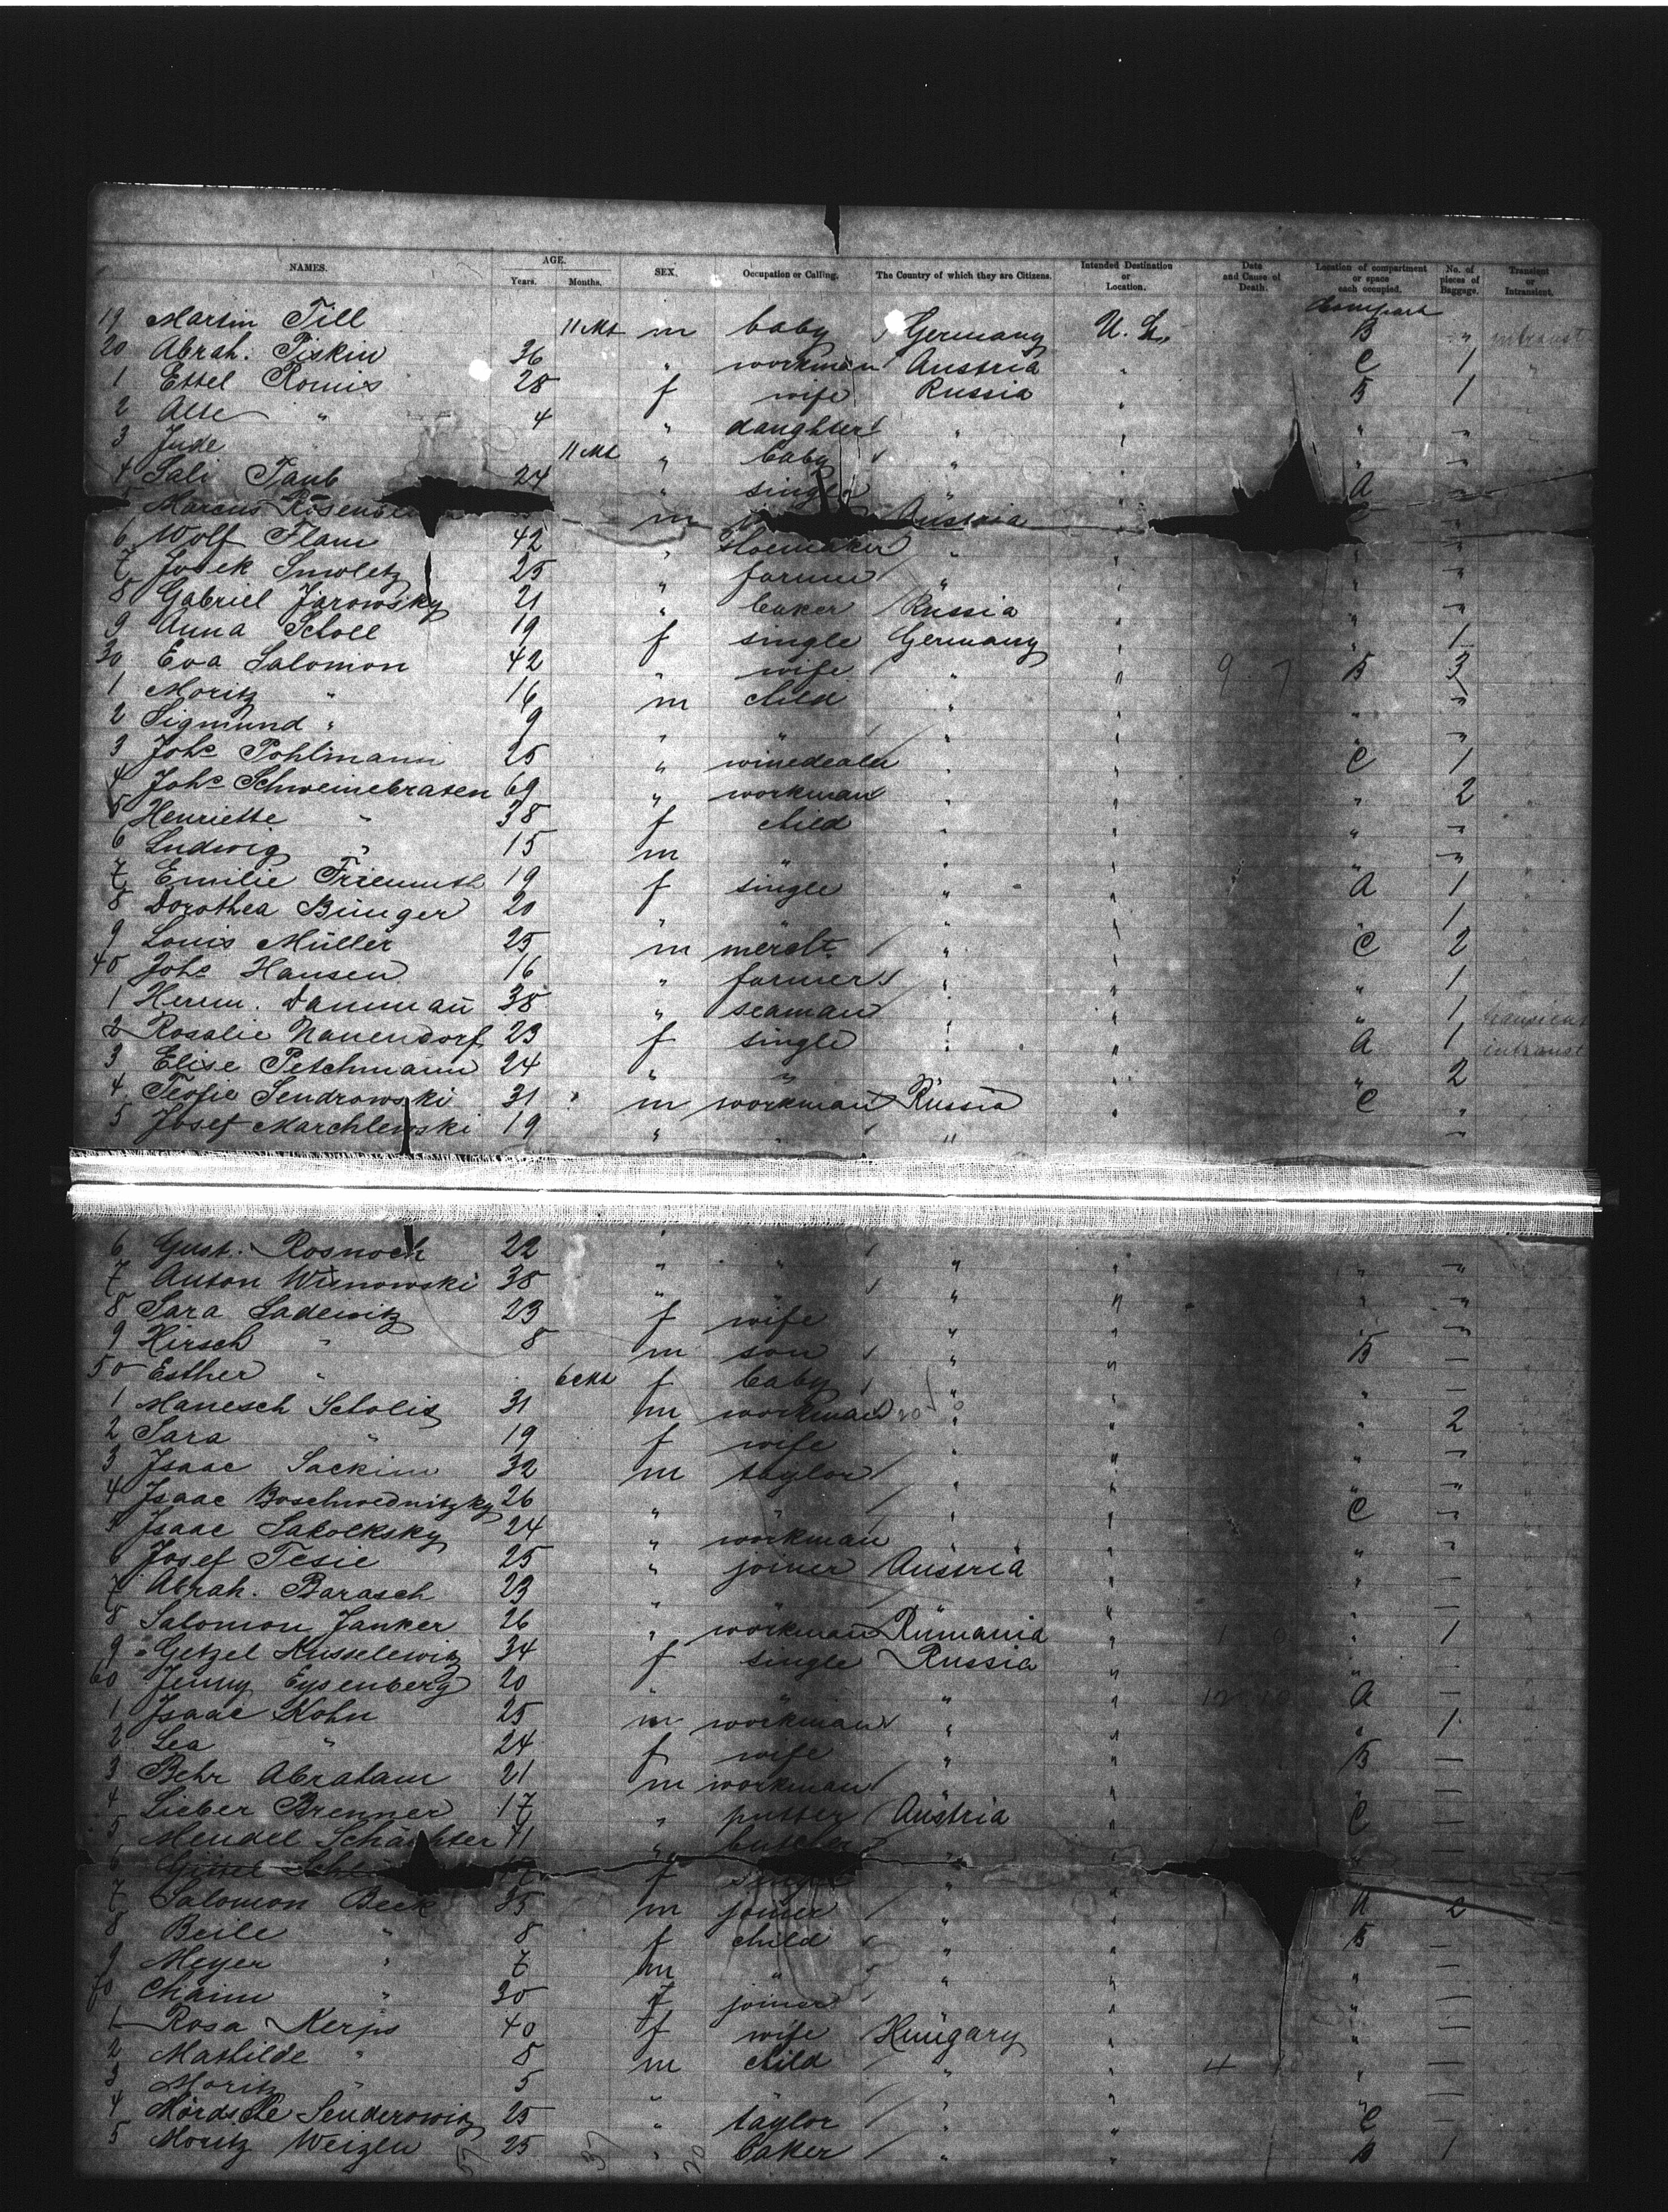 NAMES. AGE. Years. Months. SEX. Occupation or Calling. The Country of which they are Citizens. Intended Destination or Location. Date and Cause of Death. Location of compartment or space each occupied. No. of pieces of Baggage. Transient or Intransient.
Compart
19 Martin Till 11 Mt m baby Germany U. St. B "
20 Abrah. Piskin 36 " workman Austria " C 1 "
1 Ettel Romis 28 f wife Russia " B 1
2 Alte " 4 " daughter " " " "
3 Jude 11 Mt " baby " " " "
4 Sali Taub 24 " single " " A "
5 Marcus m Austria "
6 Wolf Flam 42 " shoemaker " " " "
7 Josek Smoletz 25 " " " " "
8 Gabriel Jarowsky 21 " baker Russia " " "
9 Anna Scholl 19 f single Germany " " 1
30 Eva Salomon 42 " wife " " B 3
1 Moritz " 16 m child " " " "
2 Sigmund " 9 " " " " " "
3 Johs Pohlmann 25 " winedealer " " C 1
4 Johs Schweinebraten 69 " workman " " " 2
5 Henriette " 38 f child " " " "
6 Ludwig " 15 m " " " " "
7 Emilie Friemuth 19 f single " " A 1
8 Dorothea Bünger 20 " " " 1
9 Louis Müller 25 m mercht. " " C 2
40 Johs Hansen 16 " farmer " " " 1
1 Herm. Dammañ 38 " seaman " " " 1 transient
2 Rosalie Nauendorf 23 f single " " A 1
3 Elise Petchmann 24 " " " " " 2
4 Teofie Sendrowski 31 m workman Russia " C "
5 Josef Marchlewski 19 " " " "
6 Gust. Rosnoch 22 " " " " "
7 Anton Wisnowski 38 " " " " "
8 Sara Ladewitz 23 f wife " " "
9 Hirsch " 8 m son " " B —
50 Esther " 6 Mt f baby " " " —
1 Manesch Scholit 31 m workman " " " 2
2 Sara " 19 f wife " " " "
3 Isaac Sackim 32 m taylor " " " "
4 Isaac Boschwednitzky 26 " " " " C "
5 Isaac 24 " workman " " " "
6 Josef Tesie 25 " joiner Austria " " —
7 Abrah. Barasch 23 " " " " —
8 Salomon Janker 26 " workman Rumania " " 1
9 Getzel Kusselewitz 34 f single Russia " "
60 Jenny Eysenberg 20 " " " " A —
1 Isaac Kohn 25 m workman " " " 1
2 Lea " 24 f wife " " B —
3 Behr Abraham 21 m workman " " " —
4 Lieber Brenner 17 " Austria " C —
5 Mendel Schächter 41 " butcher " "
6 Gittel f "
7 Salomon Beck 35 m joiner " " A 2
8 Beile " 8 f child " " B —
9 Meyer " 7 m " " " " —
70 Chaim " 30 f joiner " " —
1 Rosa Kerps 40 f wife Hungary " " —
2 Mathilde " 8 m child " " " —
3 Moritz " 5 " " " —
4 Mordsche Senderowitz 25 " taylor " " C —
5 Moritz 25 " baker " " 1